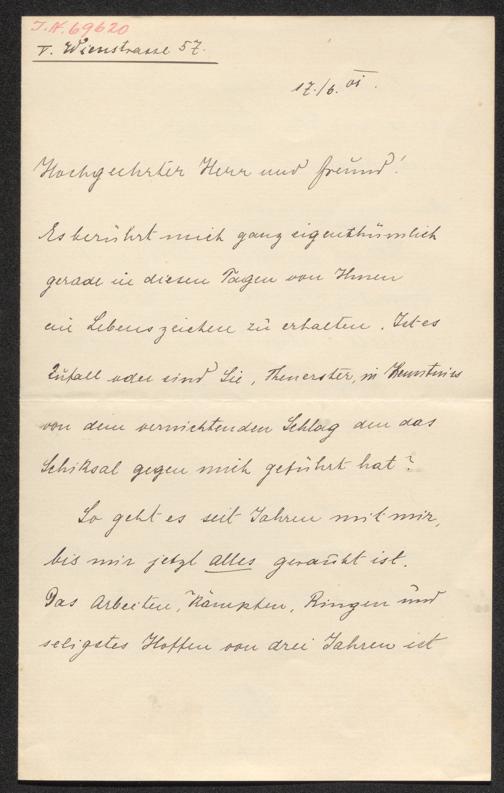 I.N. 69620
V. Wienstrasse 57.
17./6. 01.
Hochgeehrter Herr und Freund!
Es berührt mich ganz eigenthümlich
gerade in diesen Tagen von Ihnen
ein Lebenszeichen zu erhalten. Ist es
Zufall oder sind Sie, Theuerster, in Kenntniss
von dem vernichtenden Schlag den das
Schiksal gegen mich geführt hat?
So geht es seit Jahren mit mir,
bis mir jetzt alles geraubt ist.
Das Arbeiten, Kämpfen, Ringen und
seligstes Hoffen von drei Jahren ist